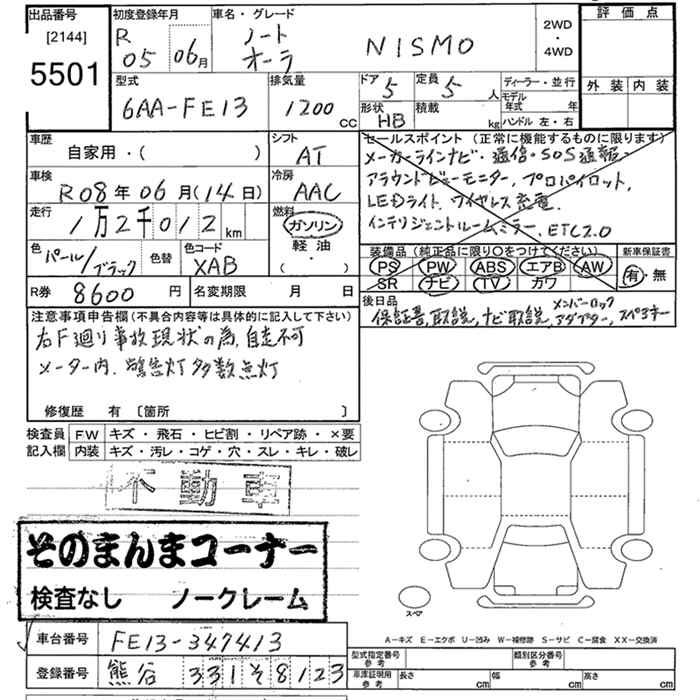 出品番号 初度登録年月 車名・グレード 2WD・4WD 評価点
[2144] R ノート
5501 05 06月 オーラ NISMO
外装 内装
型式 排気量 ドア 定員 ディーラー・並行
6AA-FE13 1200cc 5 5人 モデル年式 年
形状 積載
HB kg ハンドル 左・右
車歴 シフト セールスポイント(正常に機能するものに限ります)
自家用・( ) AT メーカーラインナビ・通信・SOS通報・
車検 冷房 アラウンドビューモニター, プロパイロット,
R08年06月(14日) AAC LEDライト, ワイヤレス充電,
走行 燃料 インテリジェントルームミラー, ETC2.0
1万2千012km ガソリン
軽油・( ・ )
色 色替 色コード 装備品(純正品に限り○をつけてください) 新車保証書
パール/ブラック XAB PS PW ABS エアB AW 有・無
SR ナビ TV カワ
R券 8600円 名変期限 月 日 後日品
保証書, 取説, ナビ取説, メンバーロックアダプター, スペアキー
注意事項申告欄(不具合内容等は具体的に記入して下さい)
右F廻り事故現状の為, 自走不可
メーター内, 警告灯多数点灯
修復歴 有 [箇所 ]
検査員 FW キズ・飛石・ヒビ割・リペア跡・×要
記入欄 内装 キズ・汚レ・コゲ・穴・スレ・キレ・破レ
不動車
そのまんまコーナー
検査なし ノークレーム
スペア
A-キズ E-エクボ U-凹み W-補修跡 S-サビ C-腐食 XX-交換済
車台番号 FE13-347413
登録番号 熊谷 331そ8123
型式指定番号 参考 類別区分番号 参考
車庫証明用 参考 長さ cm 幅 cm 高さ cm